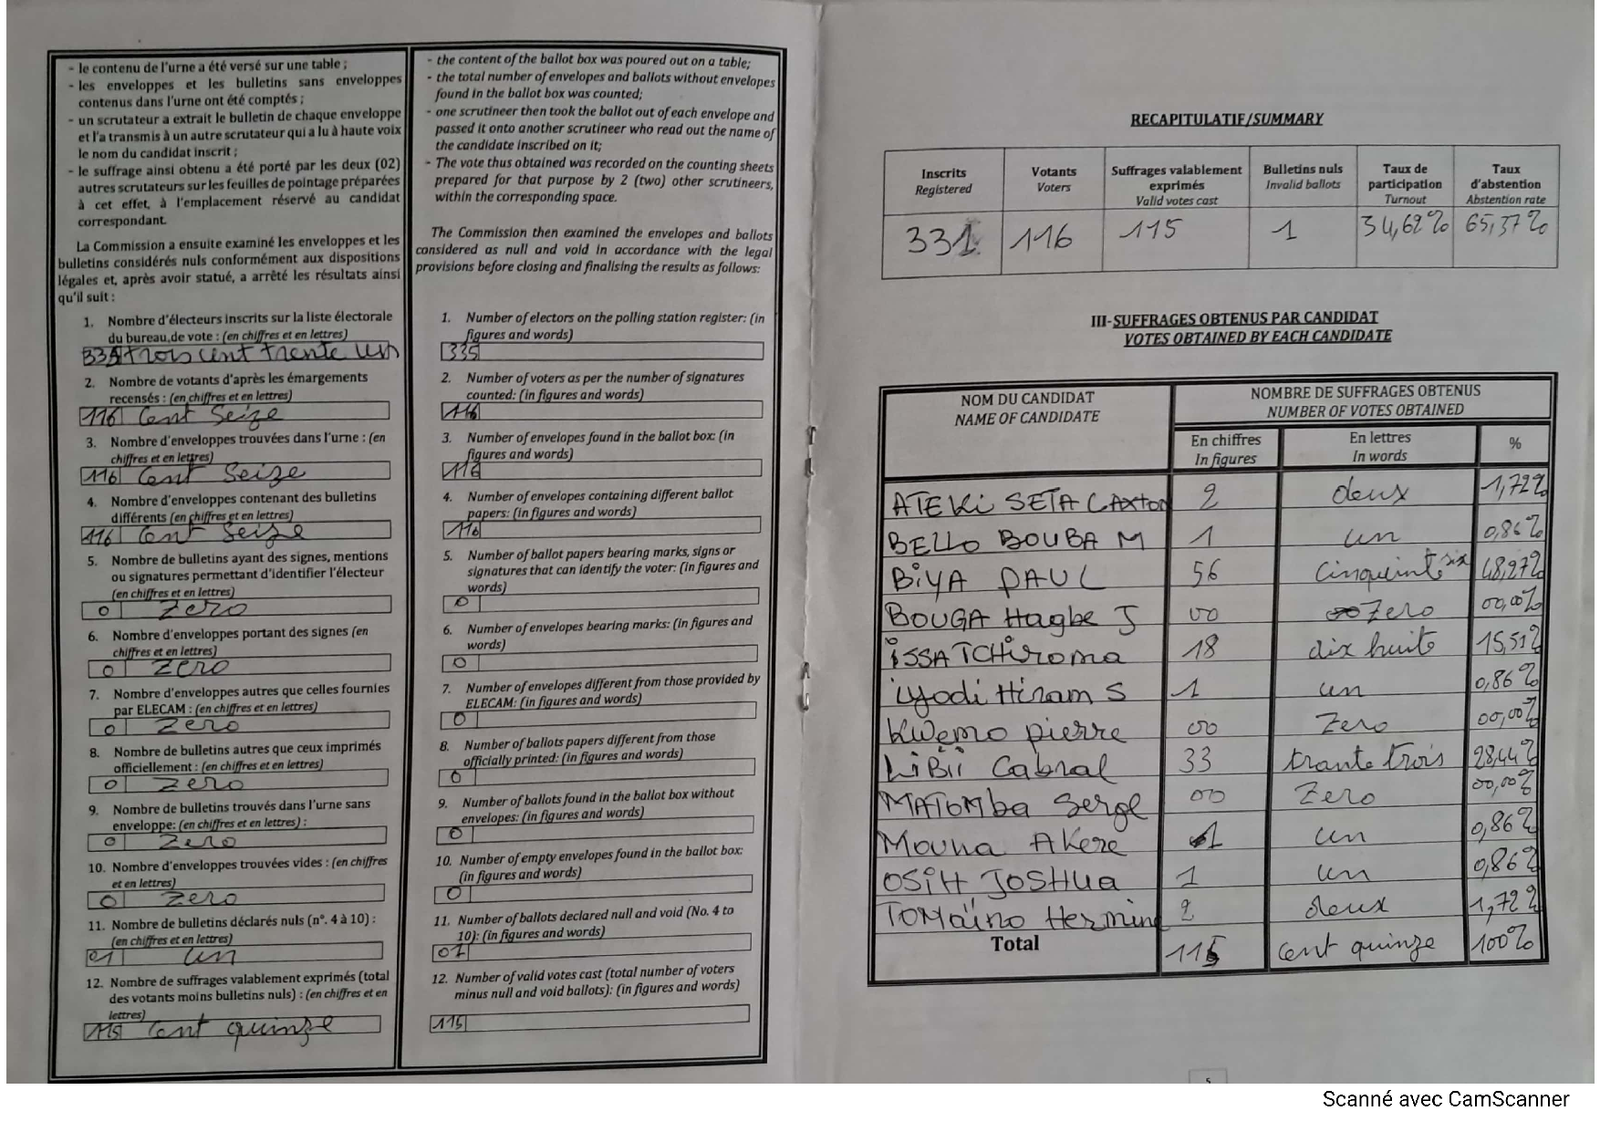 - le contenu de l'urne a été versé sur une table ;
- les enveloppes et les bulletins sans enveloppes
contenus dans l'urne ont été comptés ;
- un scrutateur a extrait le bulletin de chaque enveloppe
et l'a transmis à un autre scrutateur qui a lu à haute voix
le nom du candidat inscrit ;
- le suffrage ainsi obtenu a été porté par les deux (02)
autres scrutateurs sur les feuilles de pointage préparées
à cet effet, à l'emplacement réservé au candidat
correspondant.
La Commission a ensuite examiné les enveloppes et les
bulletins considérés nuls conformément aux dispositions
légales et, après avoir statué, a arrêté les résultats ainsi
qu'il suit :
1. Nombre d'électeurs inscrits sur la liste électorale
du bureau de vote : (en chiffres et en lettres)
trois cent trente un
2. Nombre de votants d'après les émargements
recensés : (en chiffres et en lettres)
116 Cent Seize
3. Nombre d'enveloppes trouvées dans l'urne : (en
chiffres et en lettres)
116 Cent Seize
4. Nombre d'enveloppes contenant des bulletins
différents (en chiffres et en lettres)
116 Cent Seize
5. Nombre de bulletins ayant des signes, mentions
ou signatures permettant d'identifier l'électeur
(en chiffres et en lettres)
0 Zero
6. Nombre d'enveloppes portant des signes (en
chiffres et en lettres)
0 Zero
7. Nombre d'enveloppes autres que celles fournies
par ELECAM : (en chiffres et en lettres)
0 Zero
8. Nombre de bulletins autres que ceux imprimés
officiellement : (en chiffres et en lettres)
0 Zero
9. Nombre de bulletins trouvés dans l'urne sans
enveloppe: (en chiffres et en lettres) :
0 Zero
10. Nombre d'enveloppes trouvées vides : (en chiffres
et en lettres)
0 Zero
11. Nombre de bulletins déclarés nuls (n°. 4 à 10) :
(en chiffres et en lettres)
01 un
12. Nombre de suffrages valablement exprimés (total
des votants moins bulletins nuls) : (en chiffres et en
lettres)
115 Cent quinze
- the content of the ballot box was poured out on a table;
- the total number of envelopes and ballots without envelopes
found in the ballot box was counted;
- one scrutineer then took the ballot out of each envelope and
passed it onto another scrutineer who read out the name of
the candidate inscribed on it;
- The vote thus obtained was recorded on the counting sheets
prepared for that purpose by 2 (two) other scrutineers,
within the corresponding space.
The Commission then examined the envelopes and ballots
considered as null and void in accordance with the legal
provisions before closing and finalising the results as follows:
1. Number of electors on the polling station register: (in
figures and words)
335
2. Number of voters as per the number of signatures
counted: (in figures and words)
116
3. Number of envelopes found in the ballot box: (in
figures and words)
116
4. Number of envelopes containing different ballot
papers: (in figures and words)
116
5. Number of ballot papers bearing marks, signs or
signatures that can identify the voter: (in figures and
words)
0
6. Number of envelopes bearing marks: (in figures and
words)
0
7. Number of envelopes different from those provided by
ELECAM: (in figures and words)
0
8. Number of ballots papers different from those
officially printed: (in figures and words)
0
9. Number of ballots found in the ballot box without
envelopes: (in figures and words)
0
10. Number of empty envelopes found in the ballot box:
(in figures and words)
0
11. Number of ballots declared null and void (No. 4 to
10): (in figures and words)
01
12. Number of valid votes cast (total number of voters
minus null and void ballots): (in figures and words)
115
RECAPITULATIF/SUMMARY
Inscrits Registered Votants Voters Suffrages valablement exprimés Valid votes cast Bulletins nuls Invalid ballots Taux de participation Turnout Taux d'abstention Abstention rate
331 116 115 1 34,62% 65,37%
III- SUFFRAGES OBTENUS PAR CANDIDAT
VOTES OBTAINED BY EACH CANDIDATE
NOM DU CANDIDAT NOMBRE DE SUFFRAGES OBTENUS
NAME OF CANDIDATE NUMBER OF VOTES OBTAINED
En chiffres En lettres %
In figures In words
ATEKi SETA CAxton 2 deux 1,72%
BELLO BOUBA M 1 un 0,86%
BiYA PAUL 56 Cinquinte six 48,27%
BOUGA Hagbe J 00 Zero 00,00%
iSSA TCHiroma 18 dix huite 15,51%
iyodi Hiram S 1 un 0,86%
Kwemo pierre 00 Zero 00,00%
LiBii Cabral 33 trante trois 28,44%
MATOMba Serge 00 Zero 00,00%
Mouna Akere 1 un 0,86%
OSiH JOSHUa 1 un 0,86%
TOMaïno Hermine 2 deux 1,72%
Total 115 Cent quinze 100%
5
Scanné avec CamScanner